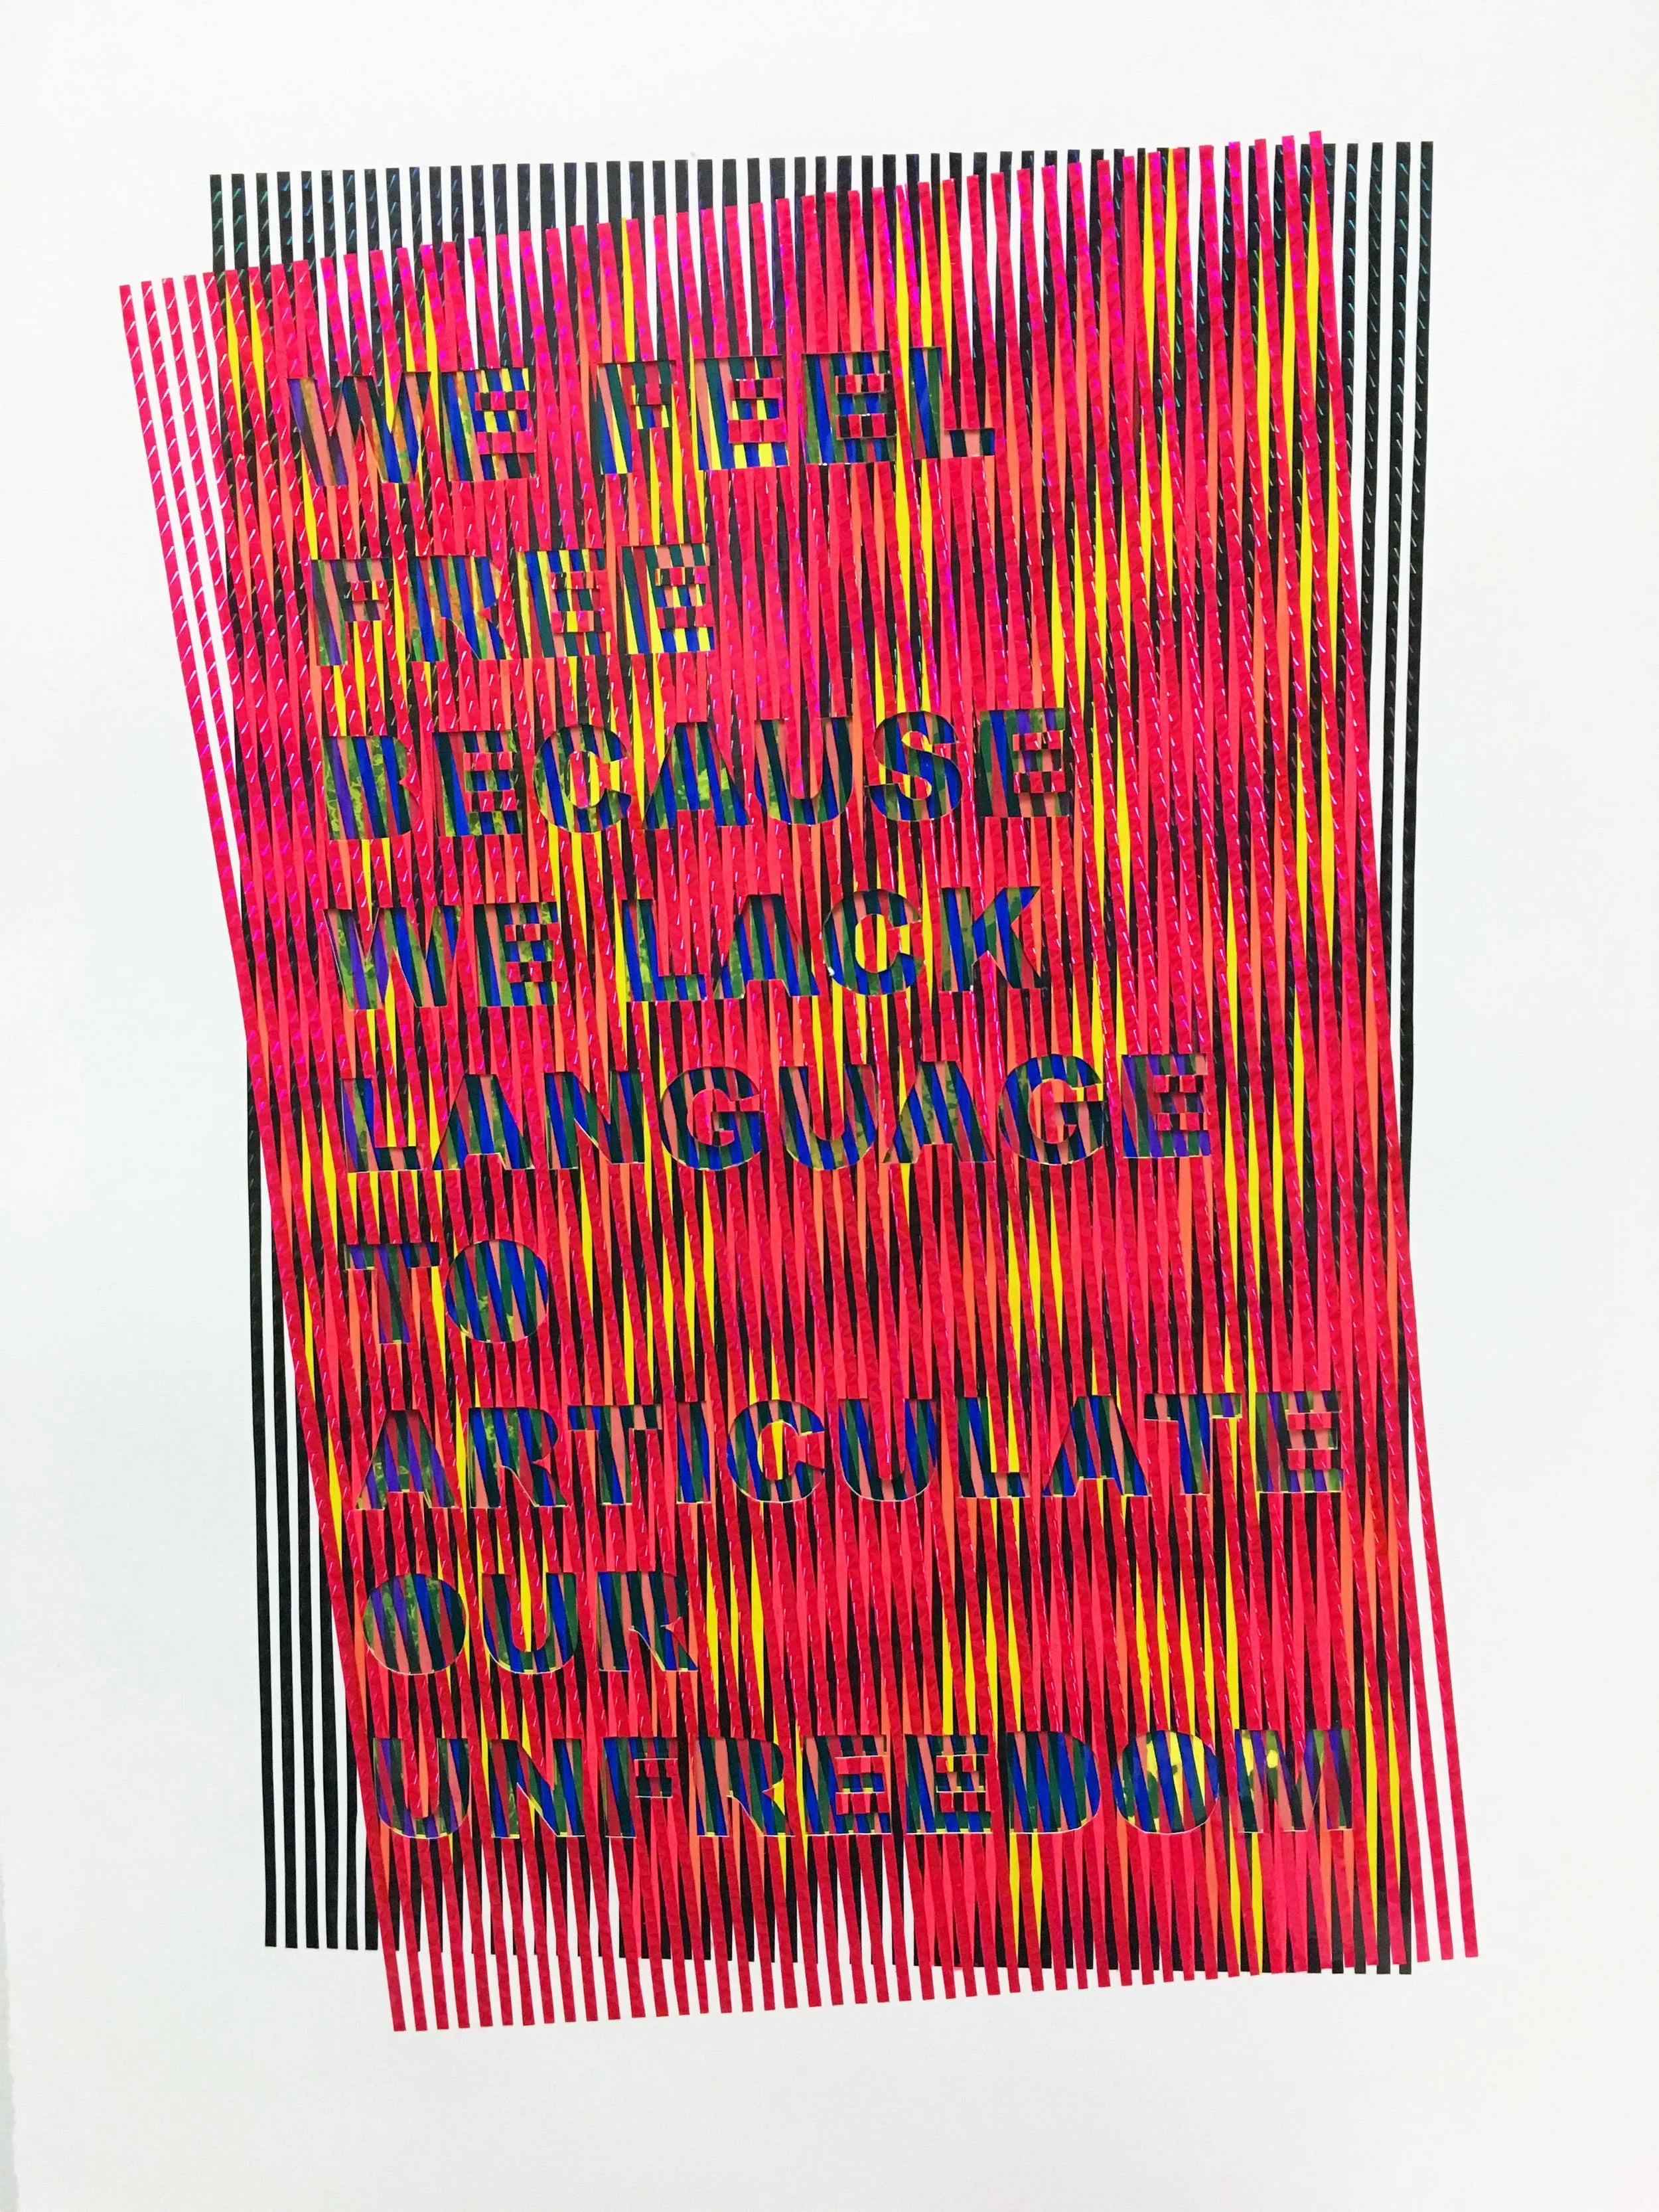 WE FEEL
FREE
BECAUSE
WE LACK
LANGUAGE
TO
ARTICULATE
OUR
UNFREEDOM